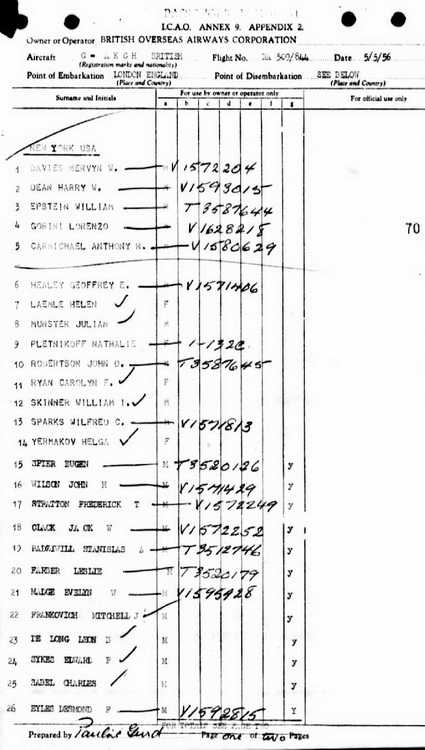 I.C.A.O. ANNEX 9. APPENDIX 2.
Owner or Operator BRITISH OVERSEAS AIRWAYS CORPORATION
Aircraft G - AKGH BRITISH Flight No. 509/844 Date 5/5/56
(Registration marks and nationality)
Point of Embarkation LONDON ENGLAND Point of Disembarkation SEE BELOW
(Place and Country) (Place and Country)
Surname and Initials For use by owner or operator only For official use only
a b c d e f g
NEW YORK USA
1 DAVIES MERVYN W. V1572204
2 DEAN HARRY W. V1593015
3 EPSTEIN WILLIAM T3587644
4 GOBINI LORENZO V1628218
70
5 CARMICHAEL ANTHONY H. V1580629
6 HEALEY GEOFFREY E. V1571406
7 LAEMLE HELEN ✓ F
8 MUNSTER JULIAN ✓ M
9 PLETNIKOFF NATHALIE F 1-132C
10 ROBERTSON JOHN D. T3587645
11 RYAN CAROLYN F. ✓ F
12 SKINNER WILLIAM I. ✓ M
13 SPARKS WILFRED C. V1571813
14 YERMAKOV HELGA ✓ F
15 SPIER EUGEN M T3520126 y
16 WILSON JOHN H M V1571429 y
17 STRATTON FREDERICK T V1572249 y
18 CLACK JACK W M V1572252 y
19 RADZIWILL STANISLAS A M T3512746 y
20 FARBER LESLIE M T3520179 y
21 MADGE EVELYN W M V1595928 y
22 FRANKOVICH MITCHELL J ✓ M y
23 DE LONG LEON D ✓ M y
24 SYKES EDWARD P ✓ M y
25 ZABEL CHARLES ✓ M y
26 EYLES DESMOND F M V1592815 Y
Prepared by Page one of two Pages